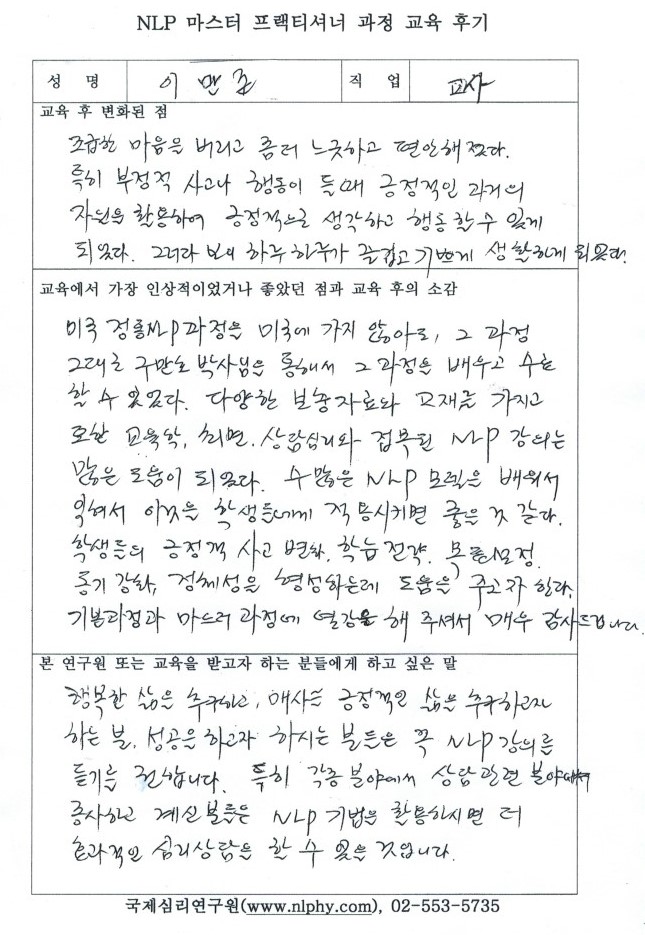 NLP 마스터 프랙티셔너 과정 교육 후기
성 명 이만호 직 업 교사
교육 후 변화된 점
조급한 마음을 버리고 좀더 느긋하고 편안해 졌다.
특히 부정적 사고나 행동이 들때 긍정적인 과거의
자원을 활용하여 긍정적으로 생각하고 행동할 수 있게
되었다. 그러다 보니 하루 하루가 즐겁고 기쁘게 생활하게 되었다.
교육에서 가장 인상적이었거나 좋았던 점과 교육 후의 소감
미국 정통NLP과정을 미국에 가지 않아도, 그 과정
그대로 구만호 박사님을 통해서 그 과정을 배우고 수료
할 수 있었다. 다양한 보충자료와 교재를 가지고
또한 교육학, 최면, 상담심리와 접목된 NLP 강의는
많은 도움이 되었다. 수많은 NLP 모델을 배워서
익혀서 이것을 학생들에게 적용시키면 좋을 것 같다.
학생들의 긍정적 사고 변화, 학습 전략, 목표설정,
동기 강화, 정체성을 형성하는데 도움을 주고자 한다.
기본과정과 마스터 과정에 열강을 해 주셔서 매우 감사드립니다.
본 연구원 또는 교육을 받고자 하는 분들에게 하고 싶은 말
행복한 삶을 추구하고, 매사를 긍정적인 삶을 추구하고자
하는 분, 성공을 하고자 하시는 분들은 꼭 NLP 강의를
듣기를 권합니다. 특히 각종 분야에서 상담 관련 분야에서
종사하고 계신 분들은 NLP 기법을 활용하시면 더
효과적인 심리상담을 할 수 있을 것입니다.
국제심리연구원(www.nlphy.com), 02-553-5735